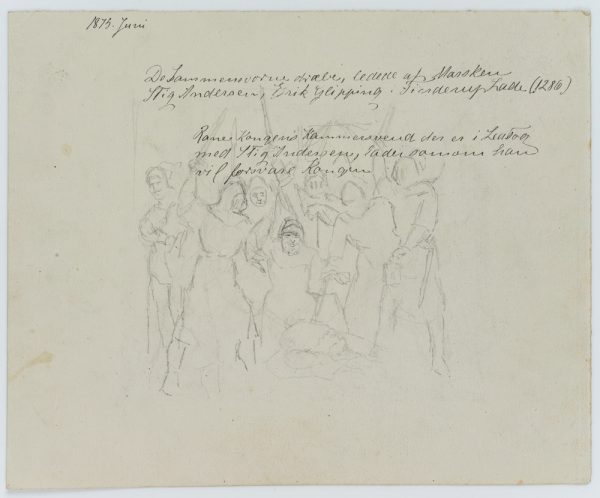 1873. Juni
De Sammensvorne dræbe, ledede af Marsken
Stig Andersen, Erik Glipping i Finderup Lade (1286)
Rane Kongens Kammersvend der er i Ledtog
med Stig Andersen, lader somom han
vil forsvare Kongen